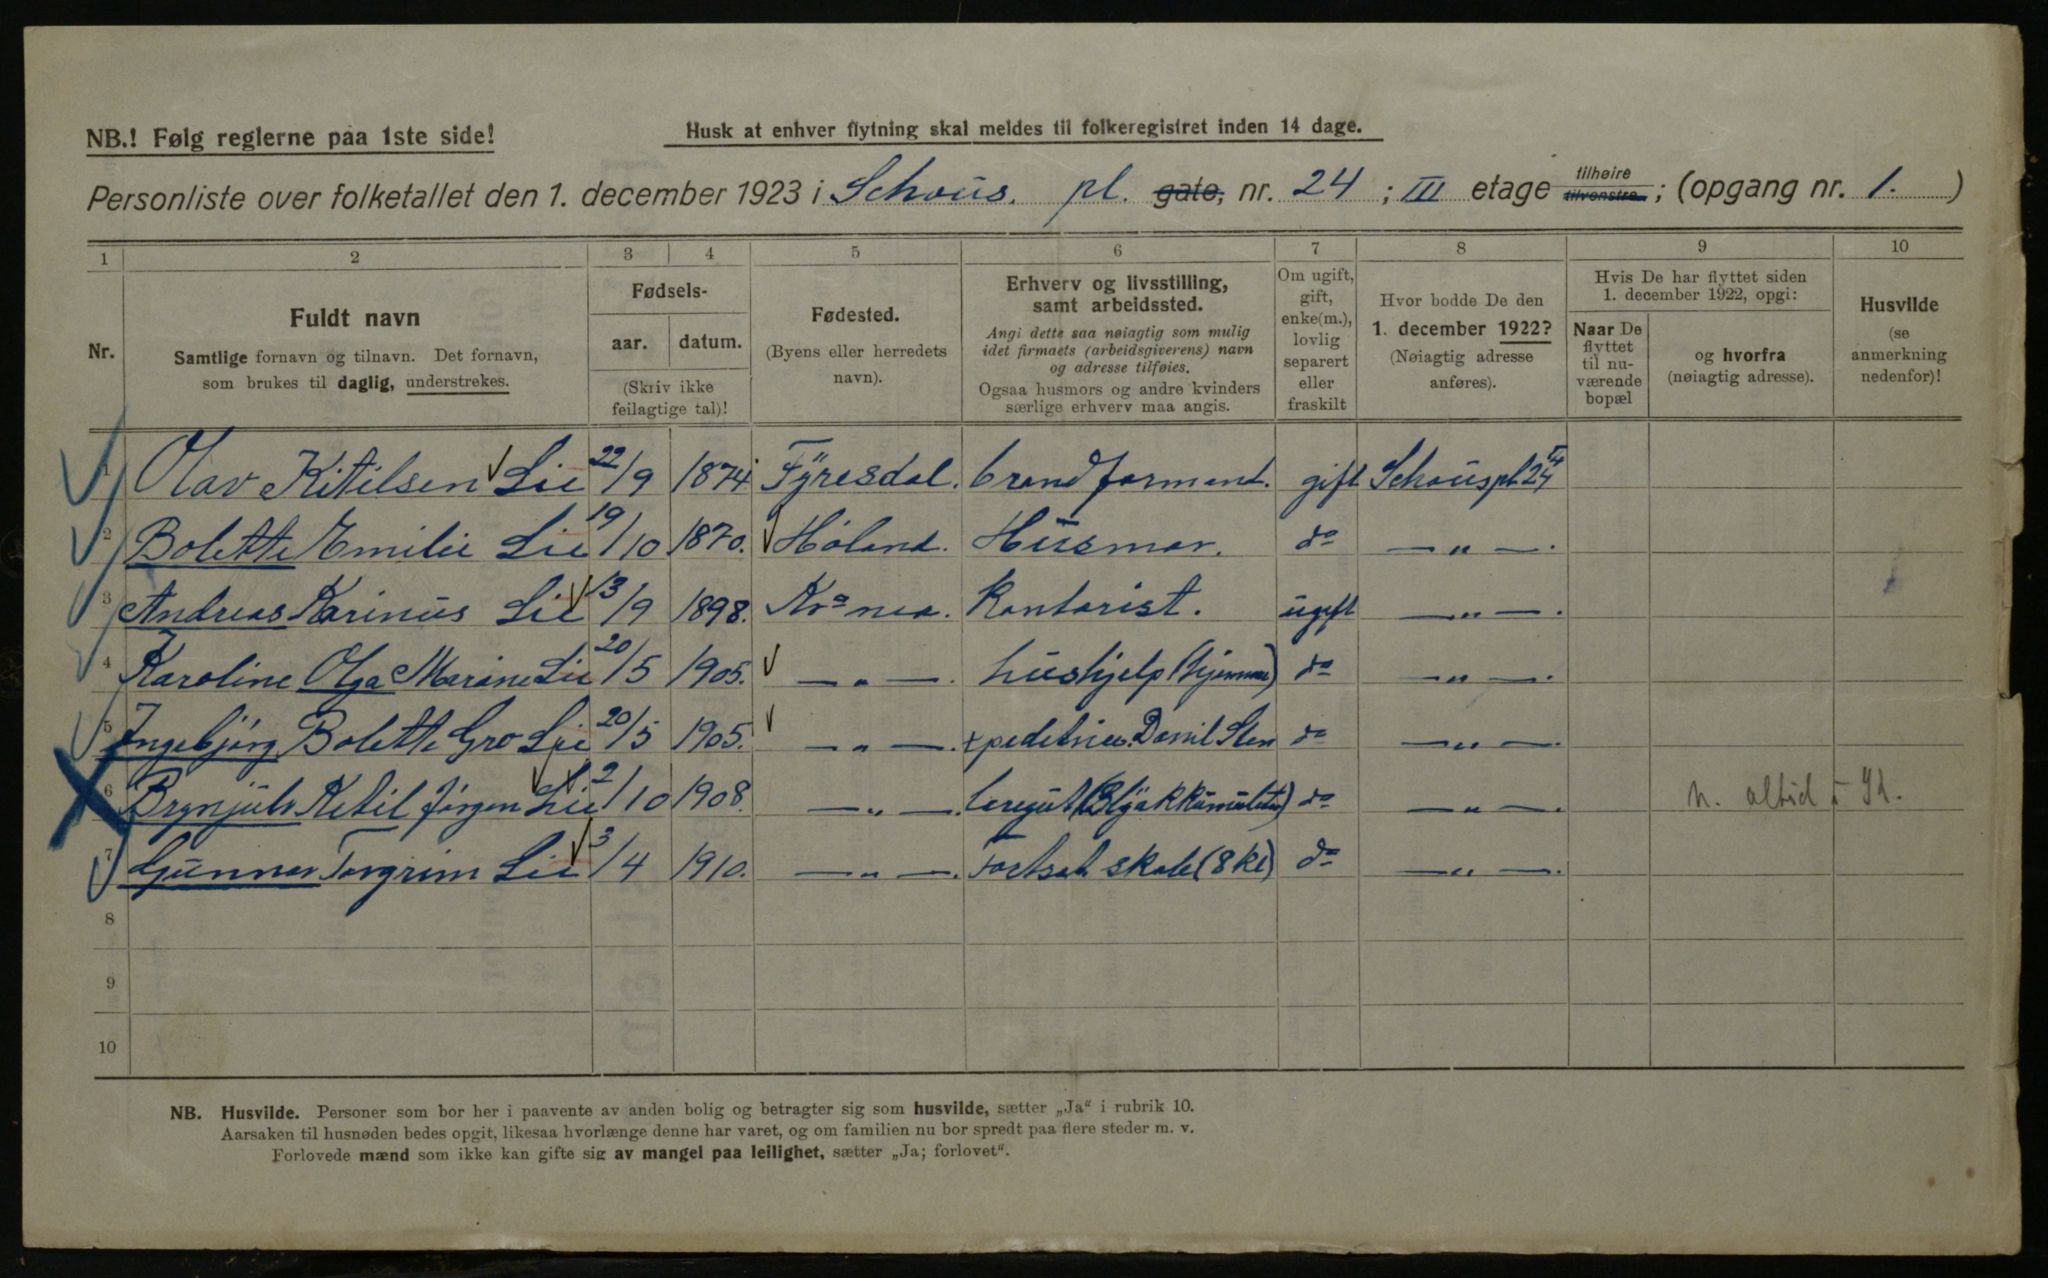 NB.! Følg reglerne paa 1ste side!
Husk at enhver flytning skal meldes til folkeregistret inden 14 dage.
Personliste over folketallet den 1. december 1923 i Schous. pl. gate, nr. 24 ; III etage tilhøire tilvenstre ; (opgang nr. 1. )
1 2 3 4 5 6 7 8 9 10
Nr.
Fuldt navn
Samtlige fornavn og tilnavn. Det fornavn,
som brukes til daglig, understrekes.
Fødsels-
aar. datum.
(Skriv ikke
feilagtige tal)!
Fødested.
(Byens eller herredets
navn).
Erhverv og livsstilling,
samt arbeidssted.
Angi dette saa nøiagtig som mulig
idet firmaets (arbeidsgiverens) navn
og adresse tilføies.
Ogsaa husmors og andre kvinders
særlige erhverv maa angis.
Om ugift,
gift,
enke(m.),
lovlig
separert
eller
fraskilt
Hvor bodde De den
1. december 1922?
(Nøiagtig adresse
anføres).
Hvis De har flyttet siden
1. december 1922, opgi:
Naar De
flyttet
til nu-
værende
bopæl
og hvorfra
(nøiagtig adresse).
Husvilde
(se
anmerkning
nedenfor)!
1 Olav Kitilsen Lie 22/9 1874. Fyresdal. brandformand. gift Schouspl 24 III
2 Bolette Emilie Lie 19/10 1870. Høland. Husmor. do — „ —.
3 Andreas Marinus Lie 13/9 1898. Kra nea. Kontorist. ugift — „ —.
4 Karoline Olga Marine Lie 20/5 1905. — „ —. hushjelp (hjemme) do — „ —.
5 Ingebjørg Bolette Gro Lie 20/5 1905. — „ —. xpeditrice. Daniel Sten do — „ —.
6 Brynjulv Ketil Jørgen Lie 2/10 1908. — „ —. do — „ —. n. altid
7 Gunnar Torgrim Lie 3/4 1910. — „ —. Fortsat. skole (8 kl) do — „ —.
8
9
10
NB. Husvilde. Personer som bor her i paavente av anden bolig og betragter sig som husvilde, sætter „Ja“ i rubrik 10.
Aarsaken til husnøden bedes opgit, likesaa hvorlænge denne har varet, og om familien nu bor spredt paa flere steder m. v.
Forlovede mænd som ikke kan gifte sig av mangel paa leilighet, sætter „Ja; forlovet“.